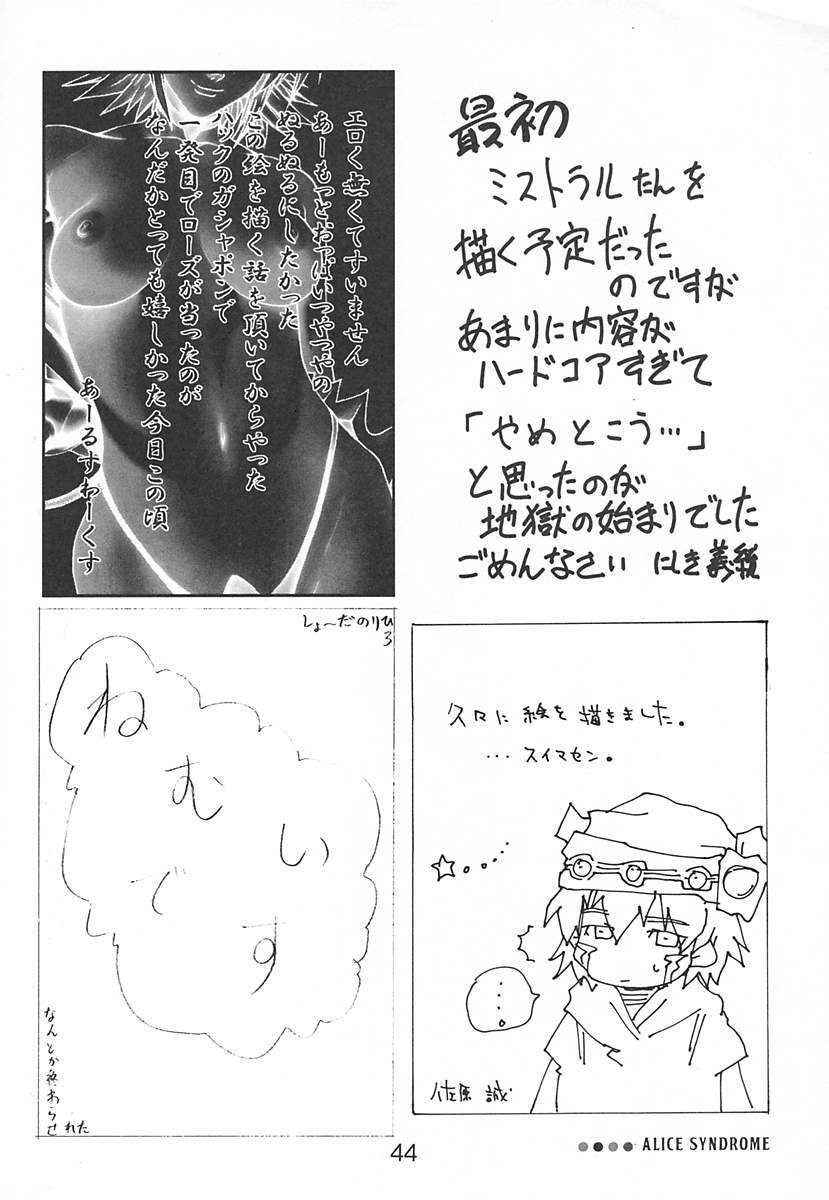 最初
ミストラルたんを
描く予定だった
のですが
あまりに内容が
ハードコアすぎて
「やめとこう…」
と思ったのが
地獄の始まりでした
ごめんなさい にしき義統
エロく無くてすいません
あーもっとおっぱいつやつやの
ぬるぬるにしたかった
この絵を描く話を頂いてからやった
ハックのガシャポンで
一発目でローズが当ったのが
なんだかとっても嬉しかった今日この頃
あーるすわーくす
久々に絵を描きました。
…スイマセン。
…。
佐原 誠
しょ〜だのりひろ
ねむいです
なんとか終わらせれた
44
ALICE SYNDROME